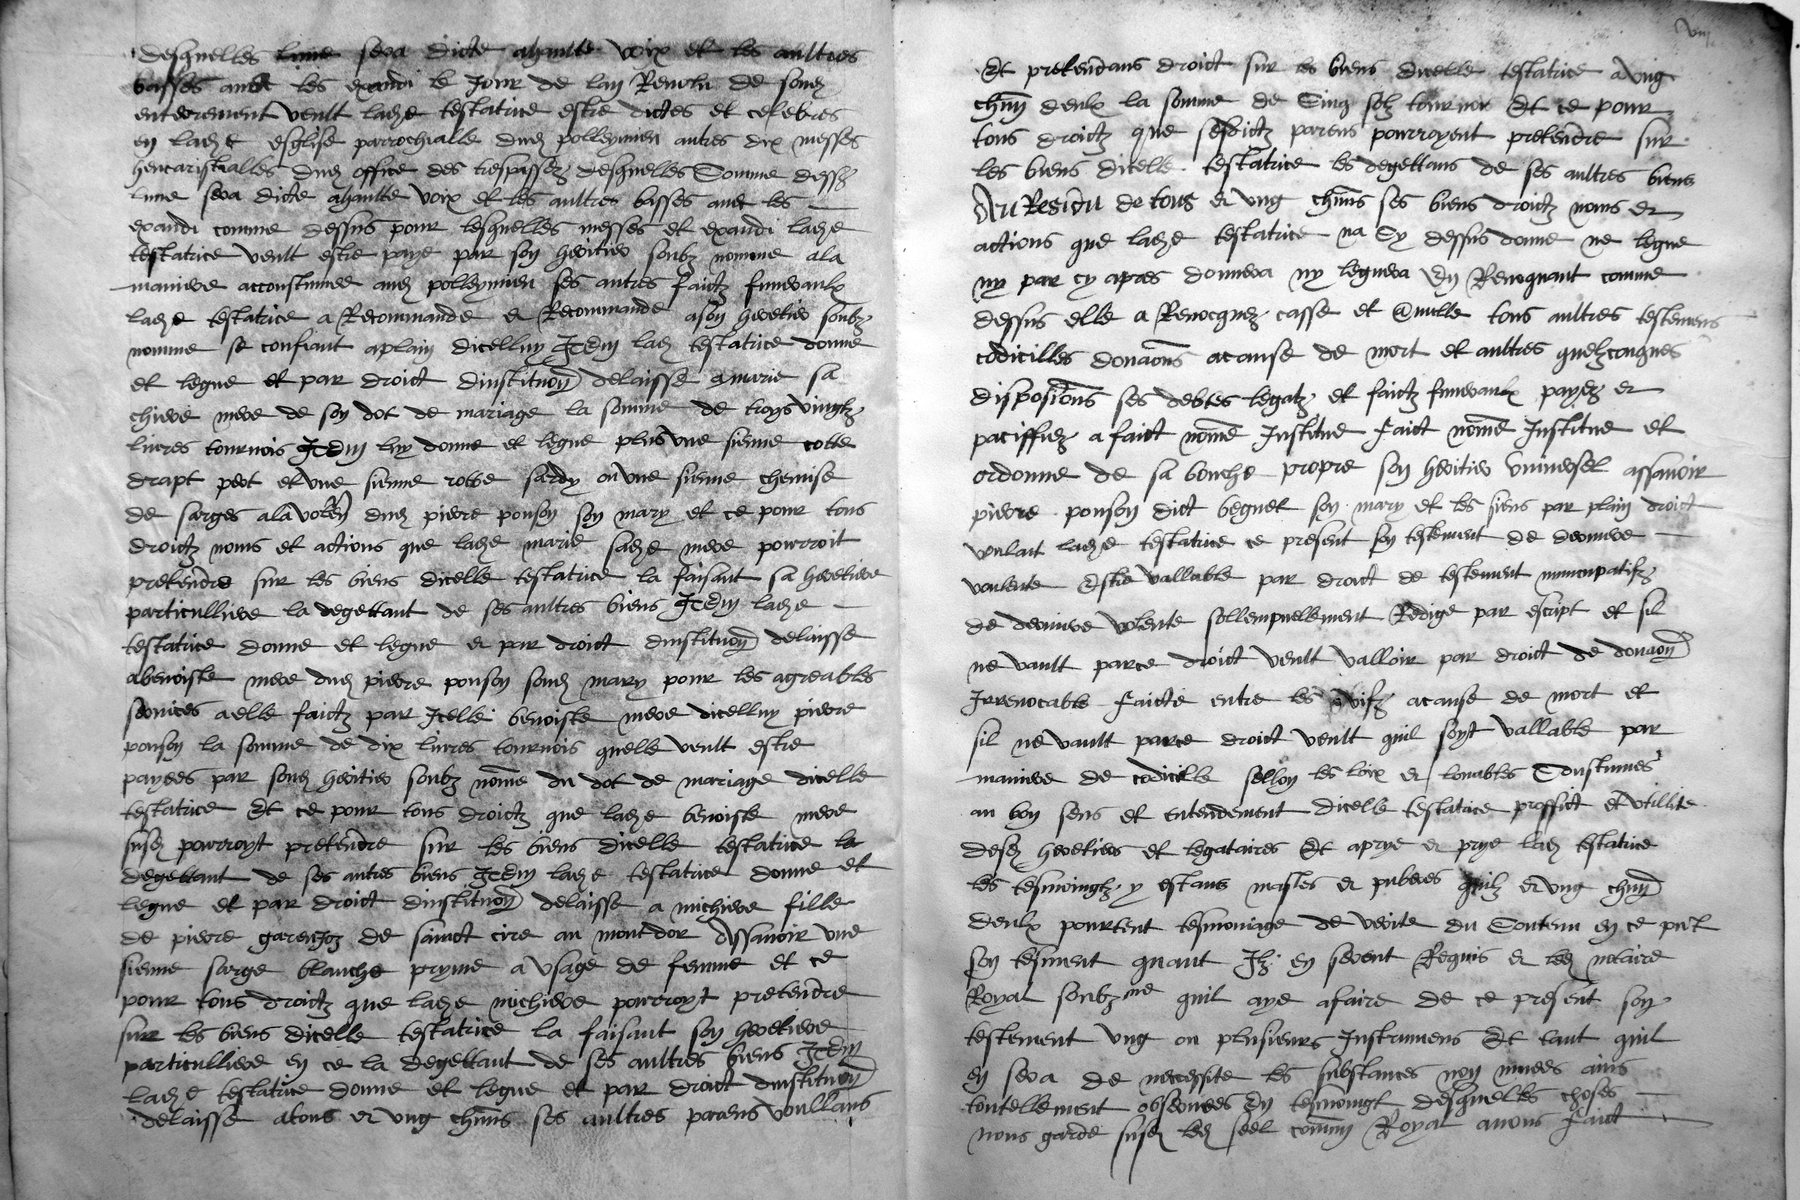 desquelles lune sera dicte ahaulte voix et les aultres
basses avec les exaudi le Jour de lan Revolu de sond
enterrement veult lade testatrice estre dictes et celebres
en lade esglise parrochialle dud polleymieu autres dix messes
heucaristialles dud office des trespassez desquelles Somme dessz
lune sera dicte ahaulte voix et les aultres basses avec les
exaudi comme dessus pour lesquelles messes et exaudi lade
testatrice veult estre paye par son heritier soubz nomme ala
maniere accoustumee aud polleymieu ses autres faictz funeraulx
lade testatrice a Recommande et Recommande ason heretier soubz
nomme se confiant aplain dicelluy Item lad testatrice donne
et legue et par droict dinstituon delaisse amarie sa
chiere mere de son dot de mariage la somme de troys vingtz
livres tournois Item luy donne et legue plus une sienne cotte
drapt pert et une sienne robbe sardy ou une sienne chemise
de sarges ala dud pierre ponson son mary et ce pour tous
droictz noms et actions que lade marie sade mere pourroit
pretendre sur les biens dicelle testatrice la faisant sa heretiere
particulliere la degettant de ses aultres biens Item lade
testatrice donne et legue et par droict dinstituon delaisse
abenoiste mere dud pierre ponson sond mary pour les agreables
services aelle faictz par Icelle benoiste mere dicelluy pierre
ponson la somme de dix livres tournois quelle veult estre
payees par sond heritier soubz nome du dot de mariage dicelle
testatrice Et ce pour tous droictz que lade benoiste mere
susd pourroyt pretendre sur les biens dicelle testatrice la
degettant de ses autres biens Item lade testatrice donne et
legue et par droict dinstituon delaisse a michiere fille
de pierre de sainct cire au mont dor Assavoir une
sienne sarge blanche pryme a usage de femme et ce
pour tous droictz que lade michiere pourroyt pretendre
sur les biens dicelle testatrice la faisant son heretiere
particulliere en ce la degettant de ses aultres biens Item
lade testatrice donne et legue et par droict dinstituon
delaisse atous et ung chuns ses aultres parens voullans
Et pretendans droict sur les biens dicelle testatrice a ung
chun deulx la somme de Cinq solz tournois Et ce pour
tous droictz que sesdictz parens pourroyent pretendre sur
les biens dicelle testatrice les degettans de ses aultres biens
Au Residu de tous et ung chuns ses biens droictz noms et
actions que lade testatrice na Cy dessus donne ne legue
ny par cy apres donnera ny leguera En Revoquant comme
dessus elle a Revocque casse et Anulle tous aultres testemens
codicilles donaons acause de mort et aultres quelzcongues
disposions ses debtes legatz et faictz funeraulx payez et
paciffiez a faict nome Institue faict nome Institue et
ordonne de sa bouche propre son heritier universel assavoir
pierre ponson dict beguet son mary et les siens par plain droict
voulant lade testatrice ce present son testement de derniere
voulente Estre vallable par droict de testement nuncupatifz
de derniere volente sollempnellement Redige par escript et sil
ne vault parce droict veult valloir par droict de donaon
Irrevocable faicte entre les vifz acause de mort et
sil ne vault parce droict veult quil soyt vallable par
maniere de codicille sellon les loix et louables Coustumes
au bon sens et entendement dicelle testatrice proffict et utillite
desd heretiers et legataires Et aprye et prye lad testatrice
les tesmoingtz y estans masles et puberes quilz et ung chun
deulx pourtent tesmoniage de verite du Contenu en ce pnt
son tesment quant Ilz en seront Requis et led notaire
Royal soubzne quil aye afaire de ce present son
testement ung ou plusieurs Instrumens Et tant quil
en sera de necessite les substances non muees ains
toutellement observees En tesmoingt desquelles choses
nous garde susd led seel commun Royal avons faict